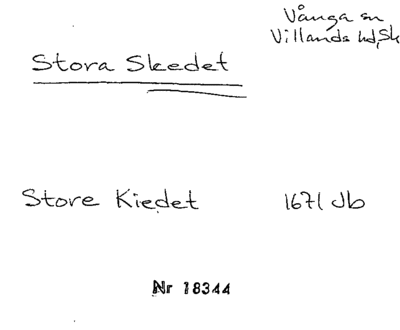 Vånga sn
Villands hd, Sk
Stora Skedet
Store Kiedet 1671 Jb
Nr 18344